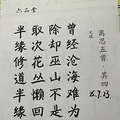 离思五首·其四
元稹
曾经沧海难为
除却巫山不是
取次花丛懒回
半缘修道半缘